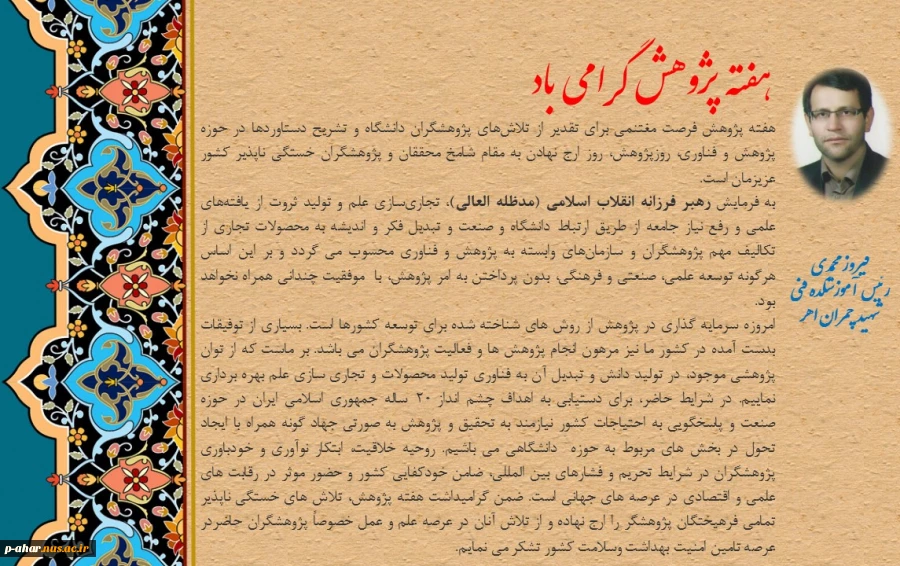 هفته پژوهش گرامی باد
هفته پژوهش فرصت مغتنمی برای تقدیر از تلاش‌های پژوهشگران دانشگاه و تشریح دستاوردها در حوزه
پژوهش و فناوری، روزپژوهش، روز ارج نهادن به مقام شامخ محققان و پژوهشگران خستگی ناپذیر کشور
عزیزمان است.
به فرمایش رهبر فرزانه انقلاب اسلامی (مدظله العالی)، تجاری‌سازی علم و تولید ثروت از یافته‌های
علمی و رفع نیاز جامعه از طریق ارتباط دانشگاه و صنعت و تبدیل فکر و اندیشه به محصولات تجاری از
تکالیف مهم پژوهشگران و سازمان‌های وابسته به پژوهش و فناوری محسوب می گردد و بر این اساس
هرگونه توسعه علمی، صنعتی و فرهنگی، بدون پرداختن به امر پژوهش، با موفقیت چندانی همراه نخواهد
بود.
امروزه سرمایه گذاری در پژوهش از روش های شناخته شده برای توسعه کشورها است. بسیاری از توفیقات
بدست آمده در کشور ما نیز مرهون انجام پژوهش ها و فعالیت پژوهشگران می باشد. بر ماست که از توان
پژوهشی موجود، در تولید دانش و تبدیل آن به فناوری تولید محصولات و تجاری سازی علم بهره برداری
نماییم. در شرایط حاضر، برای دستیابی به اهداف چشم انداز ۲۰ ساله جمهوری اسلامی ایران در حوزه
صنعت و پاسخگویی به احتیاجات کشور نیازمند به تحقیق و پژوهش به صورتی جهاد گونه همراه با ایجاد
تحول در بخش های مربوط به حوزه دانشگاهی می باشیم. روحیه خلاقیت، ابتکار نوآوری و خودباوری
پژوهشگران در شرایط تحریم و فشارهای بین المللی، ضامن خودکفایی کشور و حضور موثر در رقابت های
علمی و اقتصادی در عرصه های جهانی است. ضمن گرامیداشت هفته پژوهش، تلاش های خستگی ناپذیر
تمامی فرهیختگان پژوهشگر را ارج نهاده و از تلاش آنان در عرصه علم و عمل خصوصاً پژوهشگران حاضردر
عرصه تامین امنیت بهداشت وسلامت کشور تشکر می نمایم.
فیروز محمدی
رئیس آموزشکده فنی
شهید چمران اهر
p-ahar.nus.ac.ir